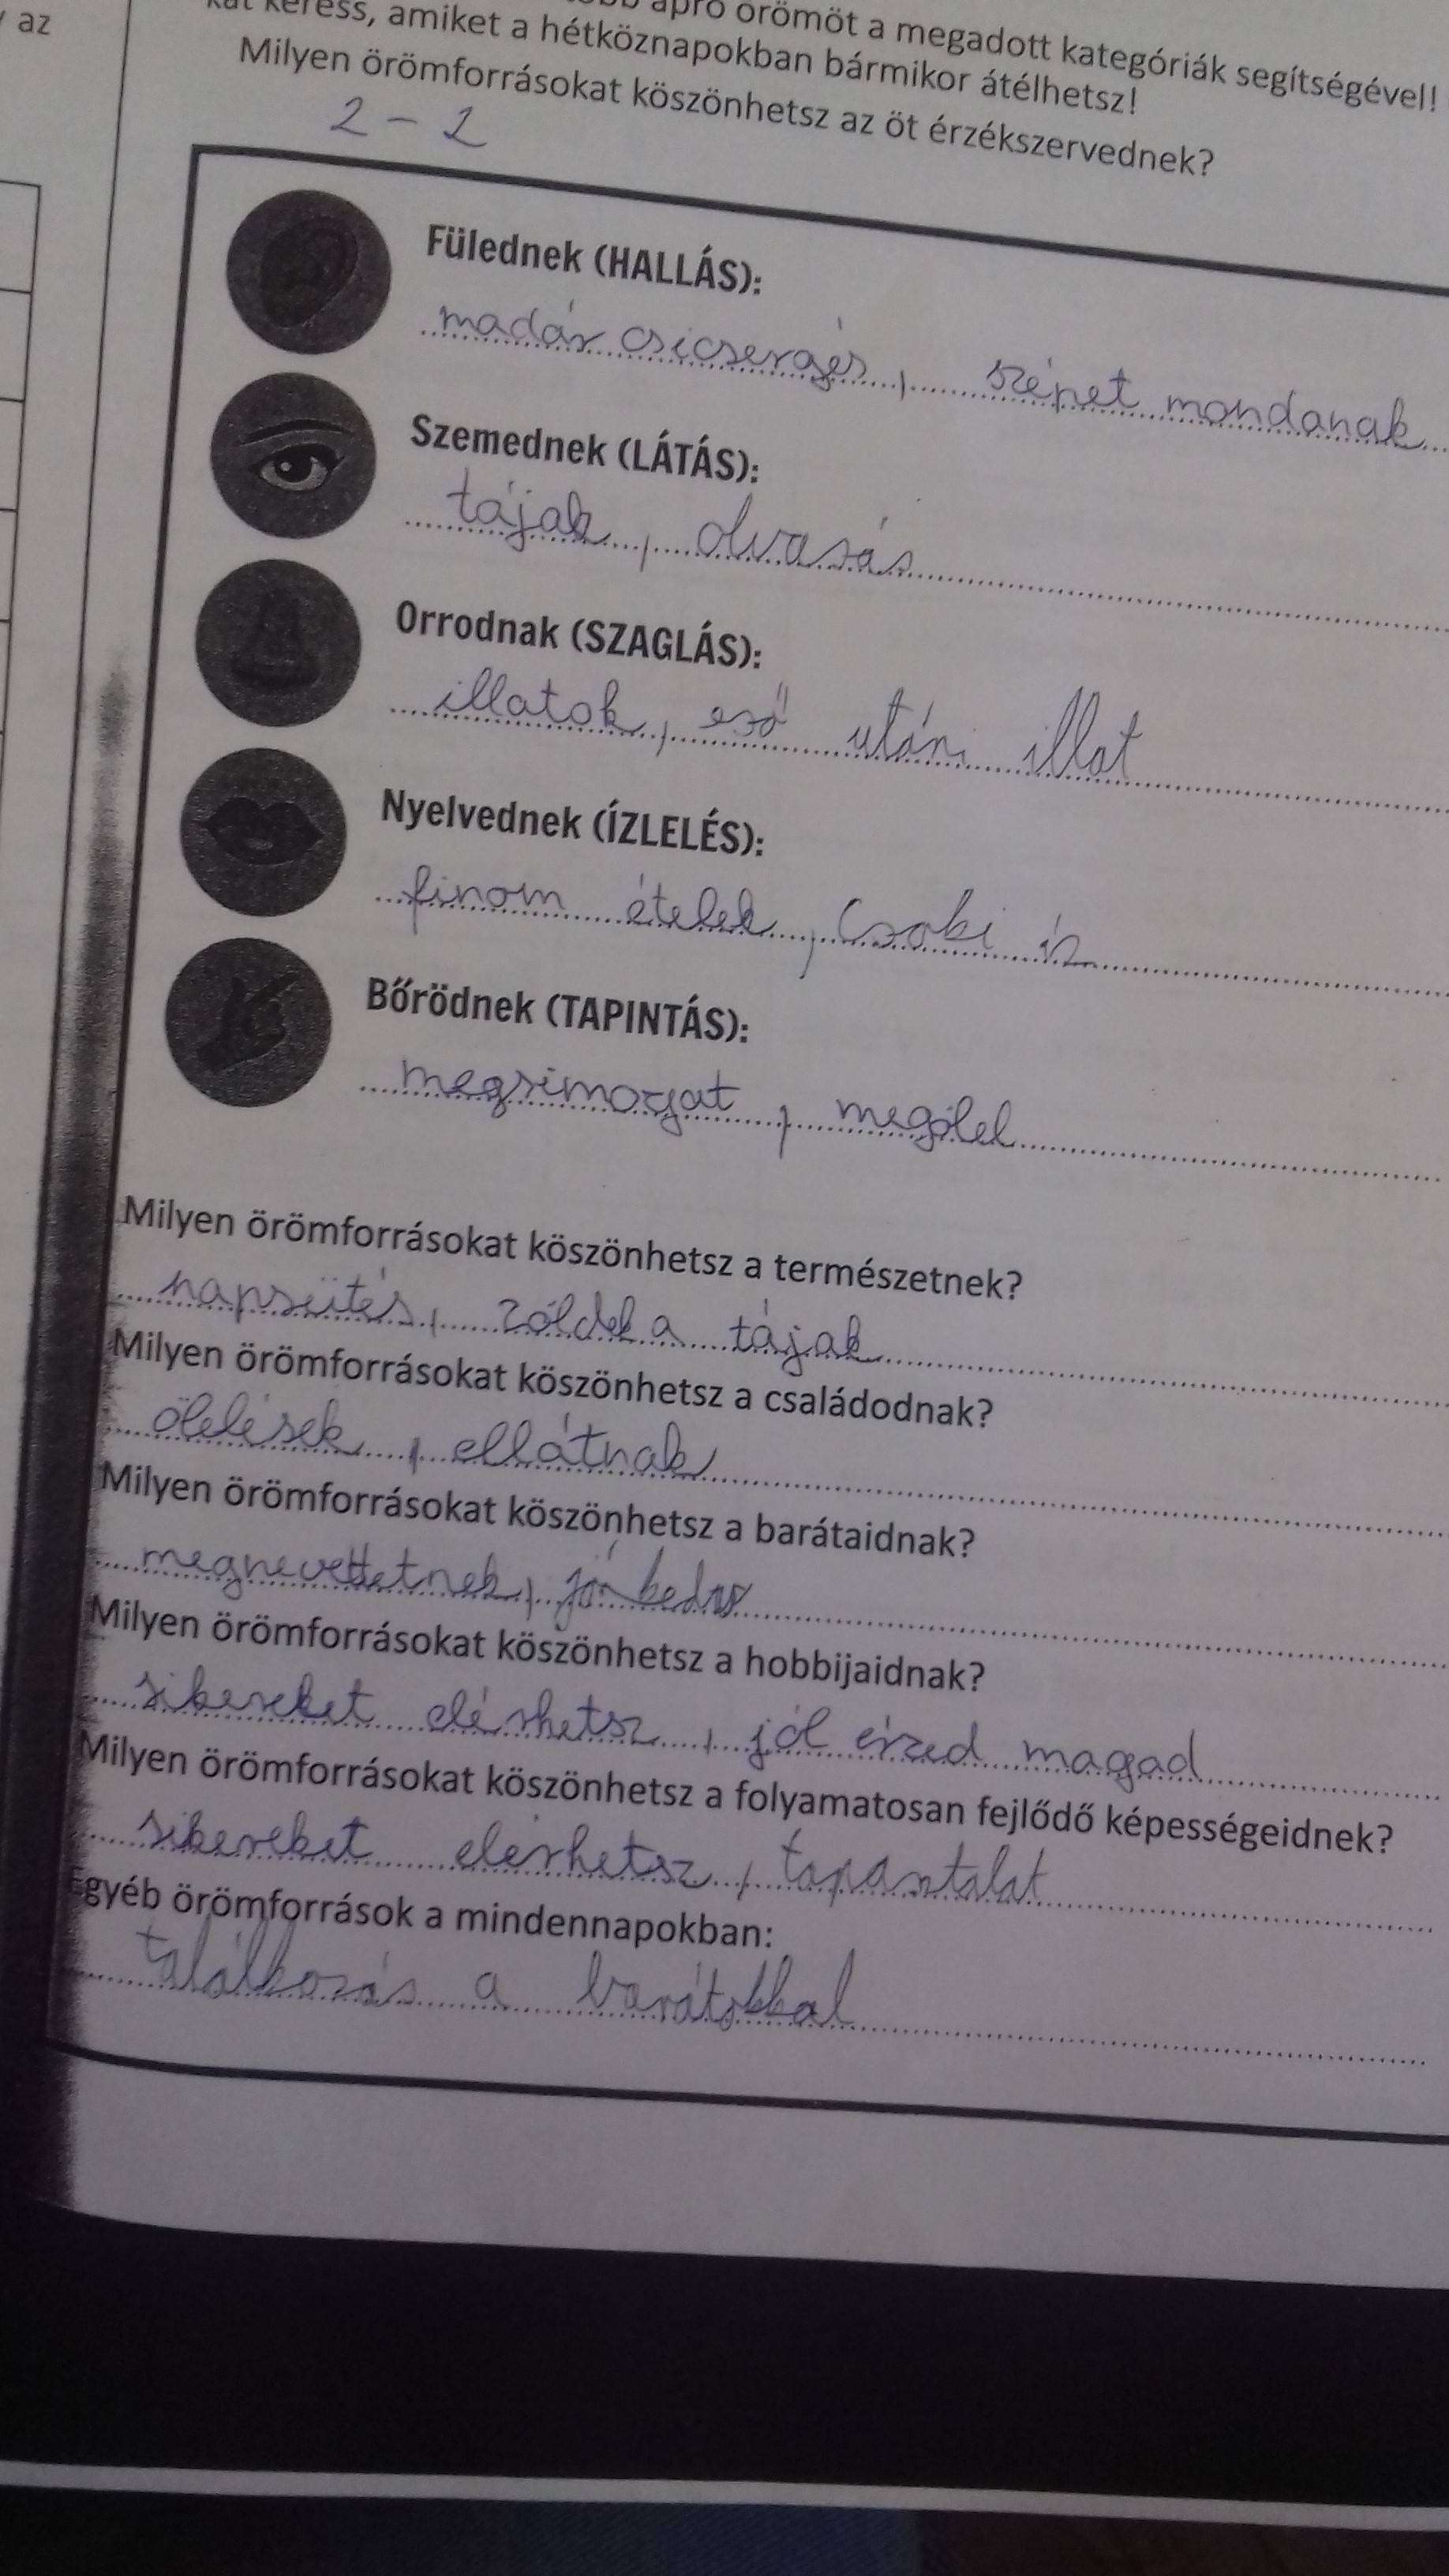 az
apró örömöt a megadott kategóriák segítségével!
keress, amiket a hétköznapokban bármikor átélhetsz!
Milyen örömforrásokat köszönhetsz az öt érzékszervednek?
2 - 2
Fülednek (HALLÁS):
madár csicsergés, szépet mondanak
Szemednek (LÁTÁS):
tájak, olvasás
Orrodnak (SZAGLÁS):
illatok, eső utáni illat
Nyelvednek (ÍZLELÉS):
finom ételek, Csoki íz
Bőrödnek (TAPINTÁS):
megsimogat, megölel
Milyen örömforrásokat köszönhetsz a természetnek?
napsütés, zöldek a tájak
Milyen örömforrásokat köszönhetsz a családodnak?
ölelések, ellátnak
Milyen örömforrásokat köszönhetsz a barátaidnak?
megnevettetnek, jó kedv
Milyen örömforrásokat köszönhetsz a hobbijaidnak?
sikereket elérhetsz, jól érzed magad
Milyen örömforrásokat köszönhetsz a folyamatosan fejlődő képességeidnek?
sikereket elérhetsz, tapasztalat
Egyéb örömforrások a mindennapokban:
találkozás a barátokkal